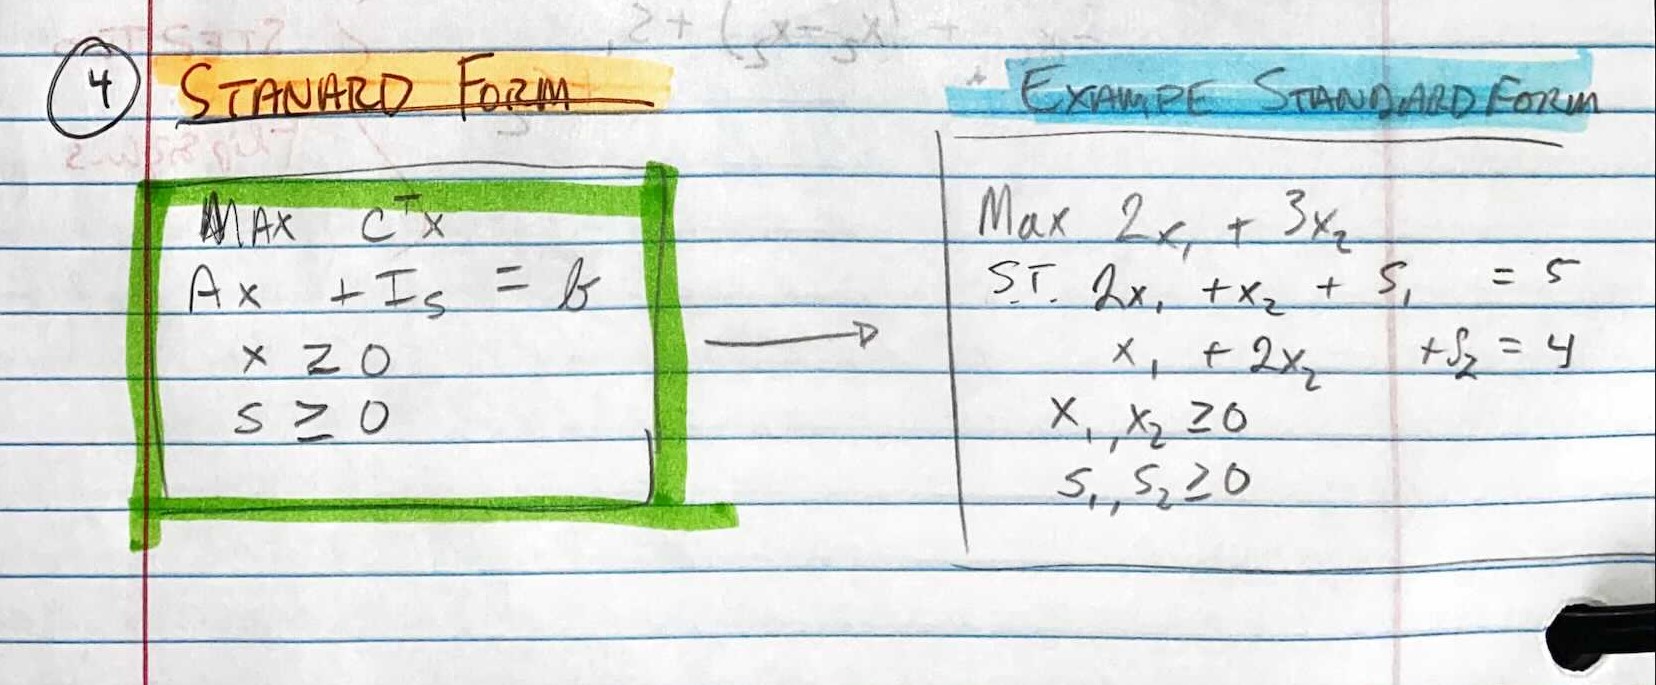 ④ STANARD FORM
MAX Cᵀx
Ax + Is = b
x ≥ 0
s ≥ 0
EXAMPE STANDARD FORM
Max 2x₁ + 3x₂
S.T. 2x₁ + x₂ + S₁ = 5
x₁ + 2x₂ + S₂ = 4
x₁, x₂ ≥ 0
S₁, S₂ ≥ 0